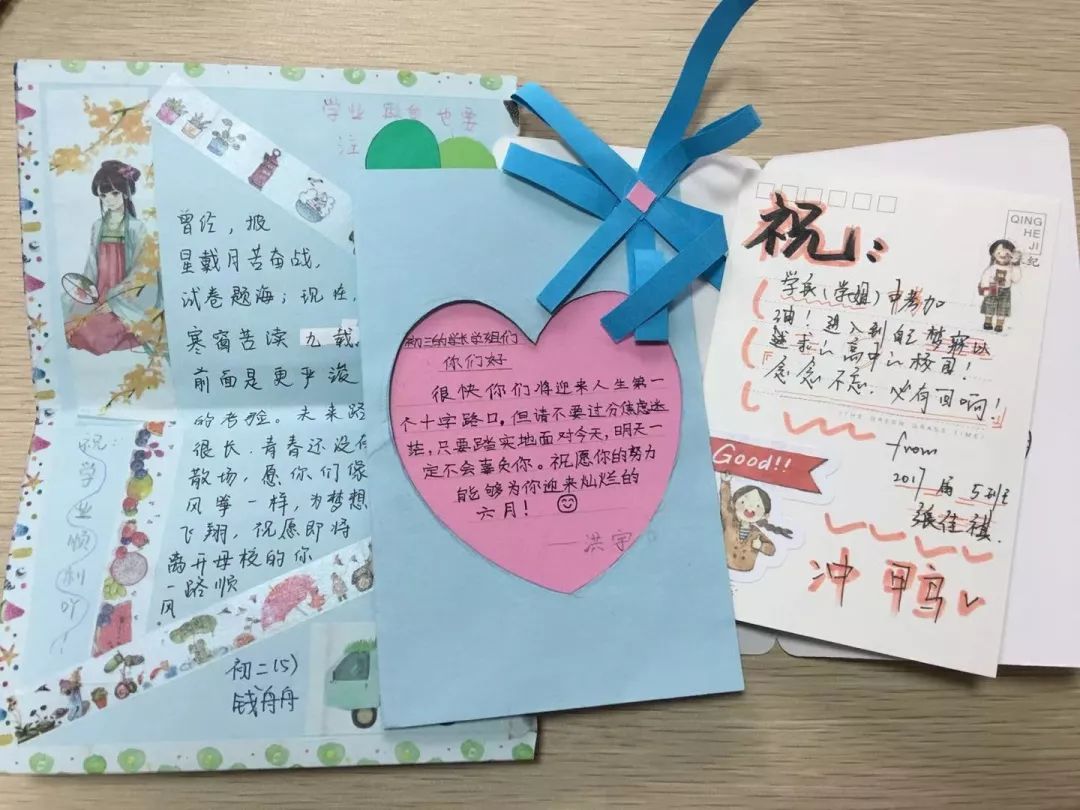 学业
也要
注
曾经，披
星戴月苦奋战，
试卷题海；现在，
寒窗苦读 九载
前面是更严峻
的考验。未来路
很长，青春还没有
散场，愿你们像
风筝一样，为梦想
飞翔，祝愿即将
离开母校的你
一路顺
风
祝：
学业顺利吖！
初二(5)
钱舟舟
初三的学长学姐们
你们好
很快你们将迎来人生第一
个十字路口。但请不要过分焦虑迷
茫，只要踏实地面对今天，明天一
定不会辜负你。祝愿你的努力
能够为你迎来灿烂的
六月！
——洪宇
祝：
QING
HE
JI
纪
学长（学姐）中考加
油！进入到自己梦寐以
念念不忘，必有回响！
from
2017届 5班
张佳祺.
Good!!
冲鸭